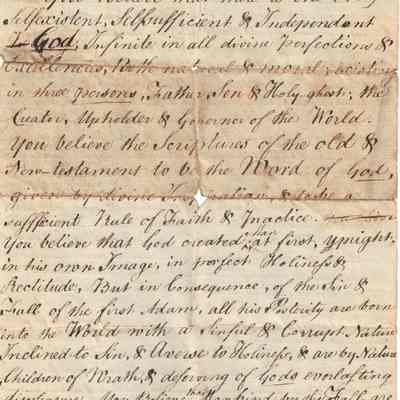 Selfexistent, Selfsufficient & Independent
God, Infinite in all divine Perfections &
Excellencies, both natural & moral; existing
in three persons, Father, Son & Holy-ghost; the
Creator, Upholder & Governor of the World.
You believe the Scriptures of the old &
New-testament to be the Word of God,
given by divine Inspiration, & to be a
sufficient Rule of Faith & Practice.
You believe that God created man at first, upright,
in his own Image, in perfect Holiness &
Rectitude, But in Consequence, of the Sin &
Fall of the first Adam, all his Posterity are born
into the World with a Sinful & Corrupt Nature
Inclined to Sin, & Averse to Holiness, & are by Nature
Children of Wrath, & deserving of Gods everlasting
displeasure. You believe that mankind by the Fall, are